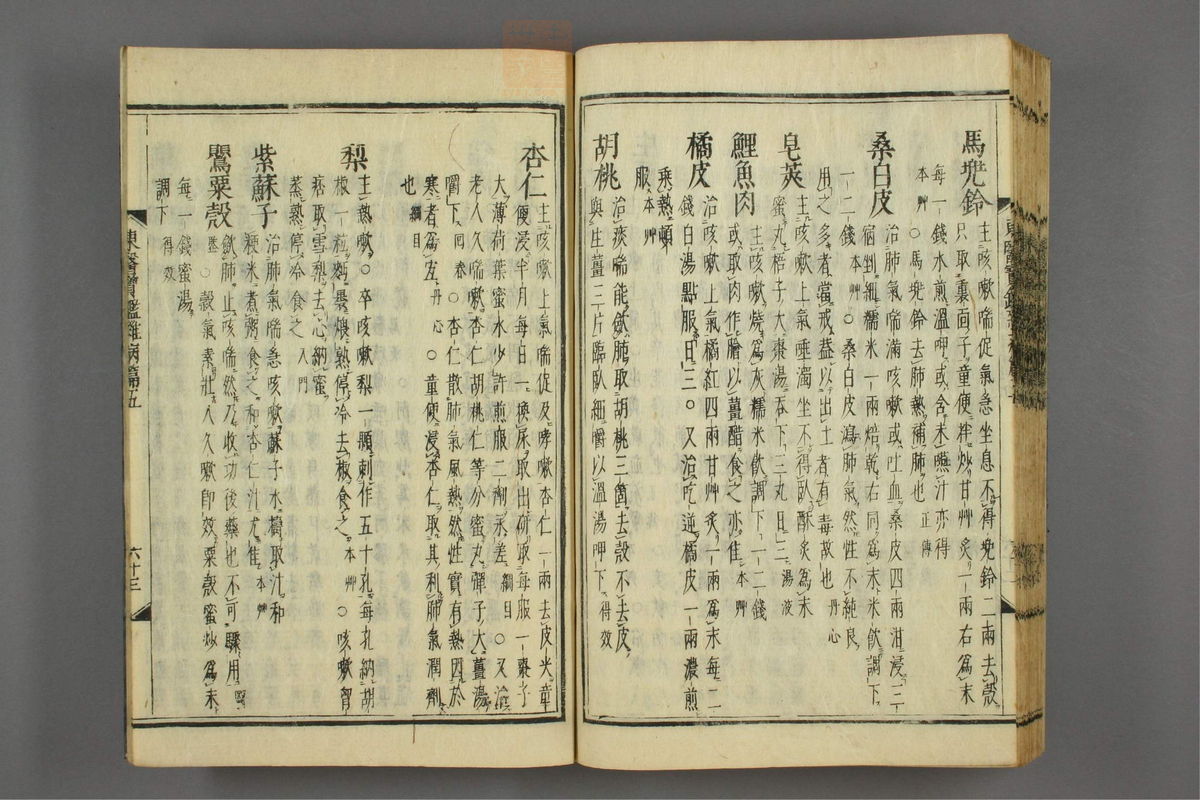 馬兜鈴
主咳嗽喘促氣急坐息不得兜鈴二兩去殼
只取裏面子童便拌炒甘艸炙一兩右爲末
每一錢水煎溫呷或含末嚥汁亦得
本艸○馬兜鈴去肺熱補肺也 正傳
桑白皮
治肺氣喘滿咳嗽或吐血桑皮四兩泔浸三
宿剉細糯米一兩焙乾右同爲末米飮調下
一二錢 本艸○桑白皮瀉肺氣然性不純良
用之多者當戒盖以出土者有毒故也 丹心
皂莢
主咳嗽上氣唾濁坐不得臥酥炙爲末
蜜丸梧子大棗湯吞下三丸日三 湯液
鯉魚肉
主咳嗽燒爲灰糯米飮調下一二錢
或取肉作膾以薑醋食之亦佳 本艸
橘皮
治咳嗽上氣橘紅四兩甘艸炙一兩爲末每二
錢白湯點服日三○又治吃逆橘皮一兩濃煎
乘熱頓
服 本艸
胡桃
治痰喘能斂肺取胡桃三箇去殼不去皮
與生薑三片臨臥細嚼以溫湯呷下 得效
杏仁
主咳嗽上氣喘促及哮嗽杏仁一兩去皮尖童
便浸半月每日一換尿取出硏取每服一棗子
大薄荷葉蜜水少許煎服二劑永差 綱目○又治
老人久喘嗽杏仁胡桃仁等分蜜丸彈子大薑湯
嚼下 回春○杏仁散肺氣風熱然性實有熱因於
寒者爲宜 丹心○童便浸杏仁取其利肺氣潤劑
也 綱目
梨
主熱嗽○卒咳嗽梨一顆刺作五十孔每孔納胡
椒一粒麪裹煨熟停冷去椒食之 本艸○咳嗽胷
痞取雪梨去心納蜜
蒸熟停冷食之 入門
紫蘇子
治肺氣喘急咳嗽蘇子水擣取汁和
粳米煮粥食之和杏仁汁尤佳 本艸
鸎粟殼
斂肺止咳喘然乃收功後藥也不可驟用 醫鑑
○殼氣素壯人久嗽卽效粟殼蜜炒爲末
每一錢蜜湯
調下 得效
東醫寶鑑雜病篇五
六十三